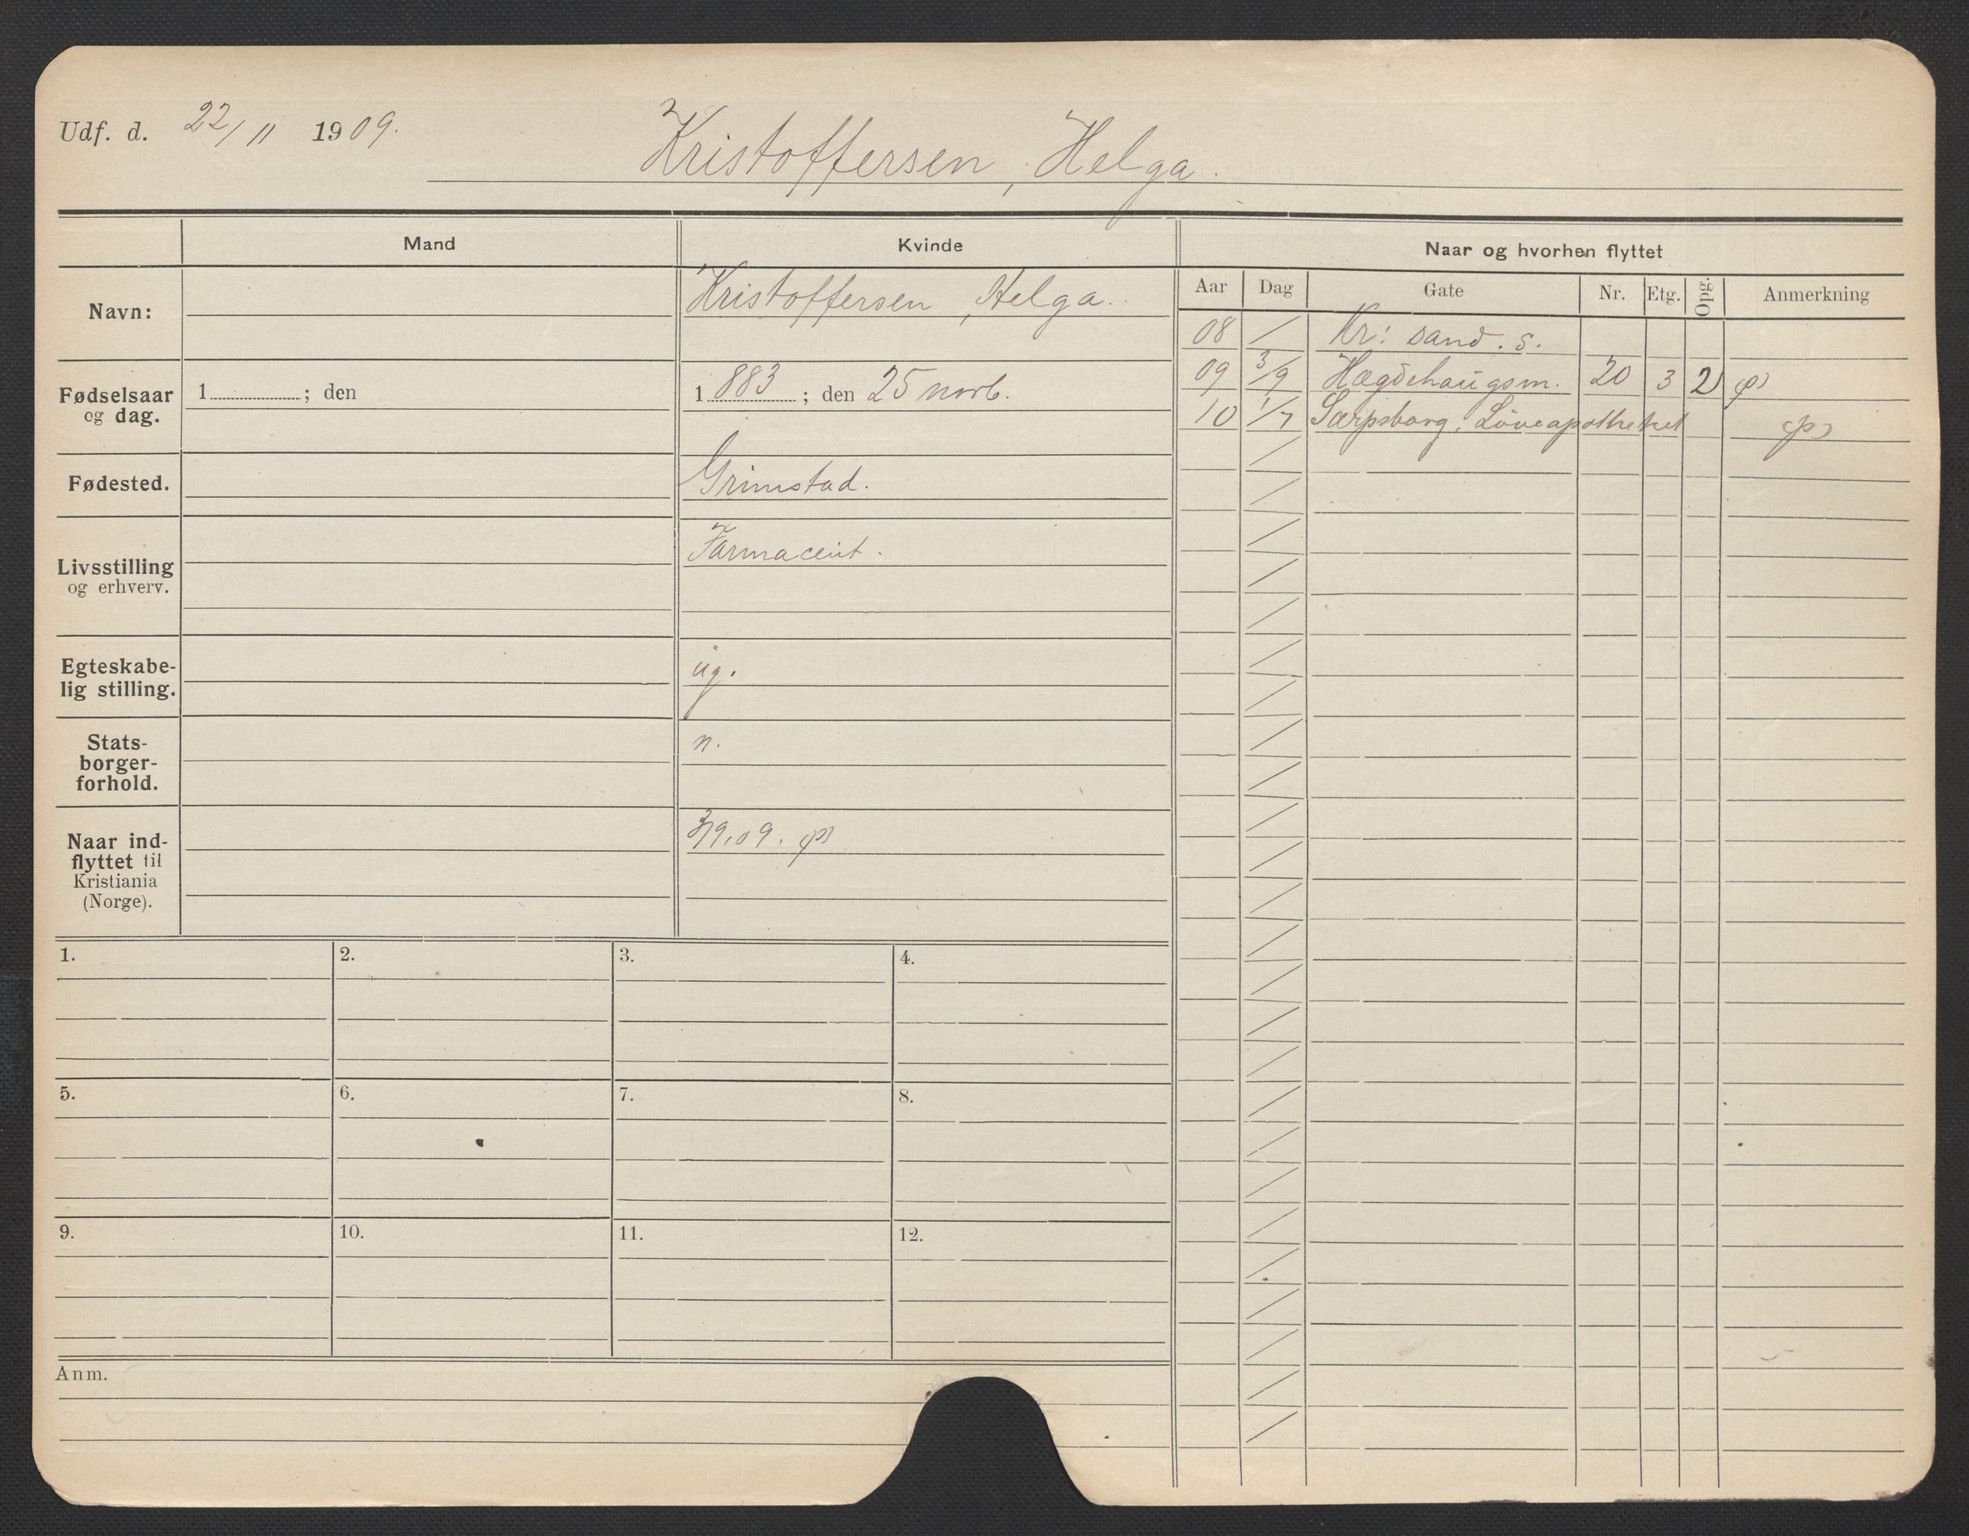 Udf. d. 22/11 1909.
Kristoffersen, Helga.
Mand
Kvinde
Naar og hvorhen flyttet
Navn:
Kristoffersen, Helga.
Aar Dag Gate Nr. Etg. Opg. Anmerkning
08 / Kr: sand. s.
09 3/9 Hægdehaugsm. 20 3 2 (p)
10 1/7 Sarpsborg, Løveapotheket (p)
Fødselsaar
og dag.
1 ; den
1883 ; den 25 novb.
Fødested.
Grimstad.
Livsstilling
og erhverv.
Farmaceut.
Egteskabe-
lig stilling.
ug.
Stats-
borger-
forhold.
n.
Naar ind-
flyttet til
Kristiania
(Norge).
3/9.09. (p)
1. 2. 3. 4.
5. 6. 7. 8.
9. 10. 11. 12.
Anm.